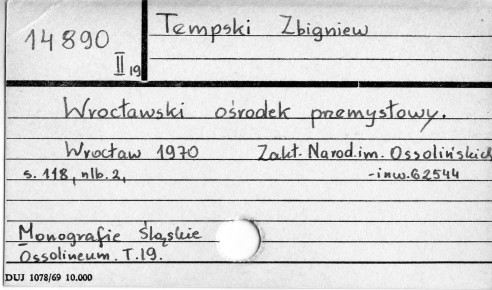 14890
II 19
Tempski Zbigniew
Wrocławski ośrodek przemysłowy.
Wrocław 1970 Zakł. Narod. im. Ossolińskich
s. 118, nlb. 2, -inw. 62544
Monografie Śląskie
Ossolineum. T. 19.
DUJ 1078/69 10.000